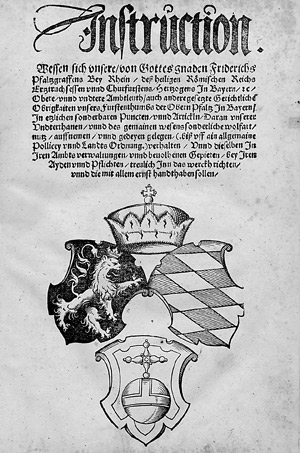 Instruction.
Wessen sich vnsere/von Gottes gnaden Friderichs
Pfaltzgraffens Bey Rhein/ deß heiligen Römischen Reichs
Ertztruchsessen vnnd Churfürstens/ Hertzogens In Bayern/ ꝛc
Obere/ vnnd vndtere Ambtleuth/auch andere gesetzte Gerichtliche
Obrigkaiten vnsers Fürstenthumbs der Obern Pfaltz In Bayern/
In etzlichen sonderbaren Puncten/ vnnd Articuln/ Daran vnserer
Vndterthanen/ vnnd des gemainen wesens sonderliche wolfart/
nutz/ auffnemen/ vnnd gedeyen gelegen/ (biß vff ain allgemaine
Pollicey vnnd Landts Ordnung) verhalten/ Vnnd dieselben In
Iren Ambts verwaltungen/ vnnd beuolhenen Gepieten/ bey Iren
Ayden vnnd Pflichten/ treulich Inn das werckh richten/
vnnd die mit allem ernst handthaben sollen/